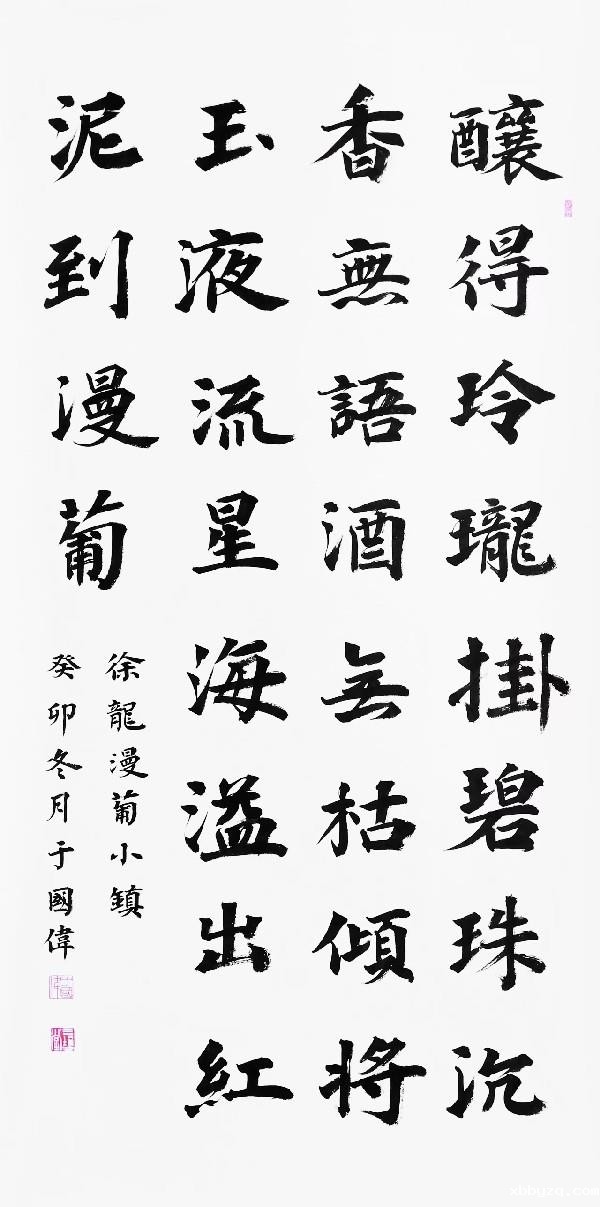 釀得玲瓏掛碧珠沉
香無語酒无枯傾將
玉液流星海溢出紅
泥到漫葡
徐龍漫葡小鎮
癸卯冬月于國偉